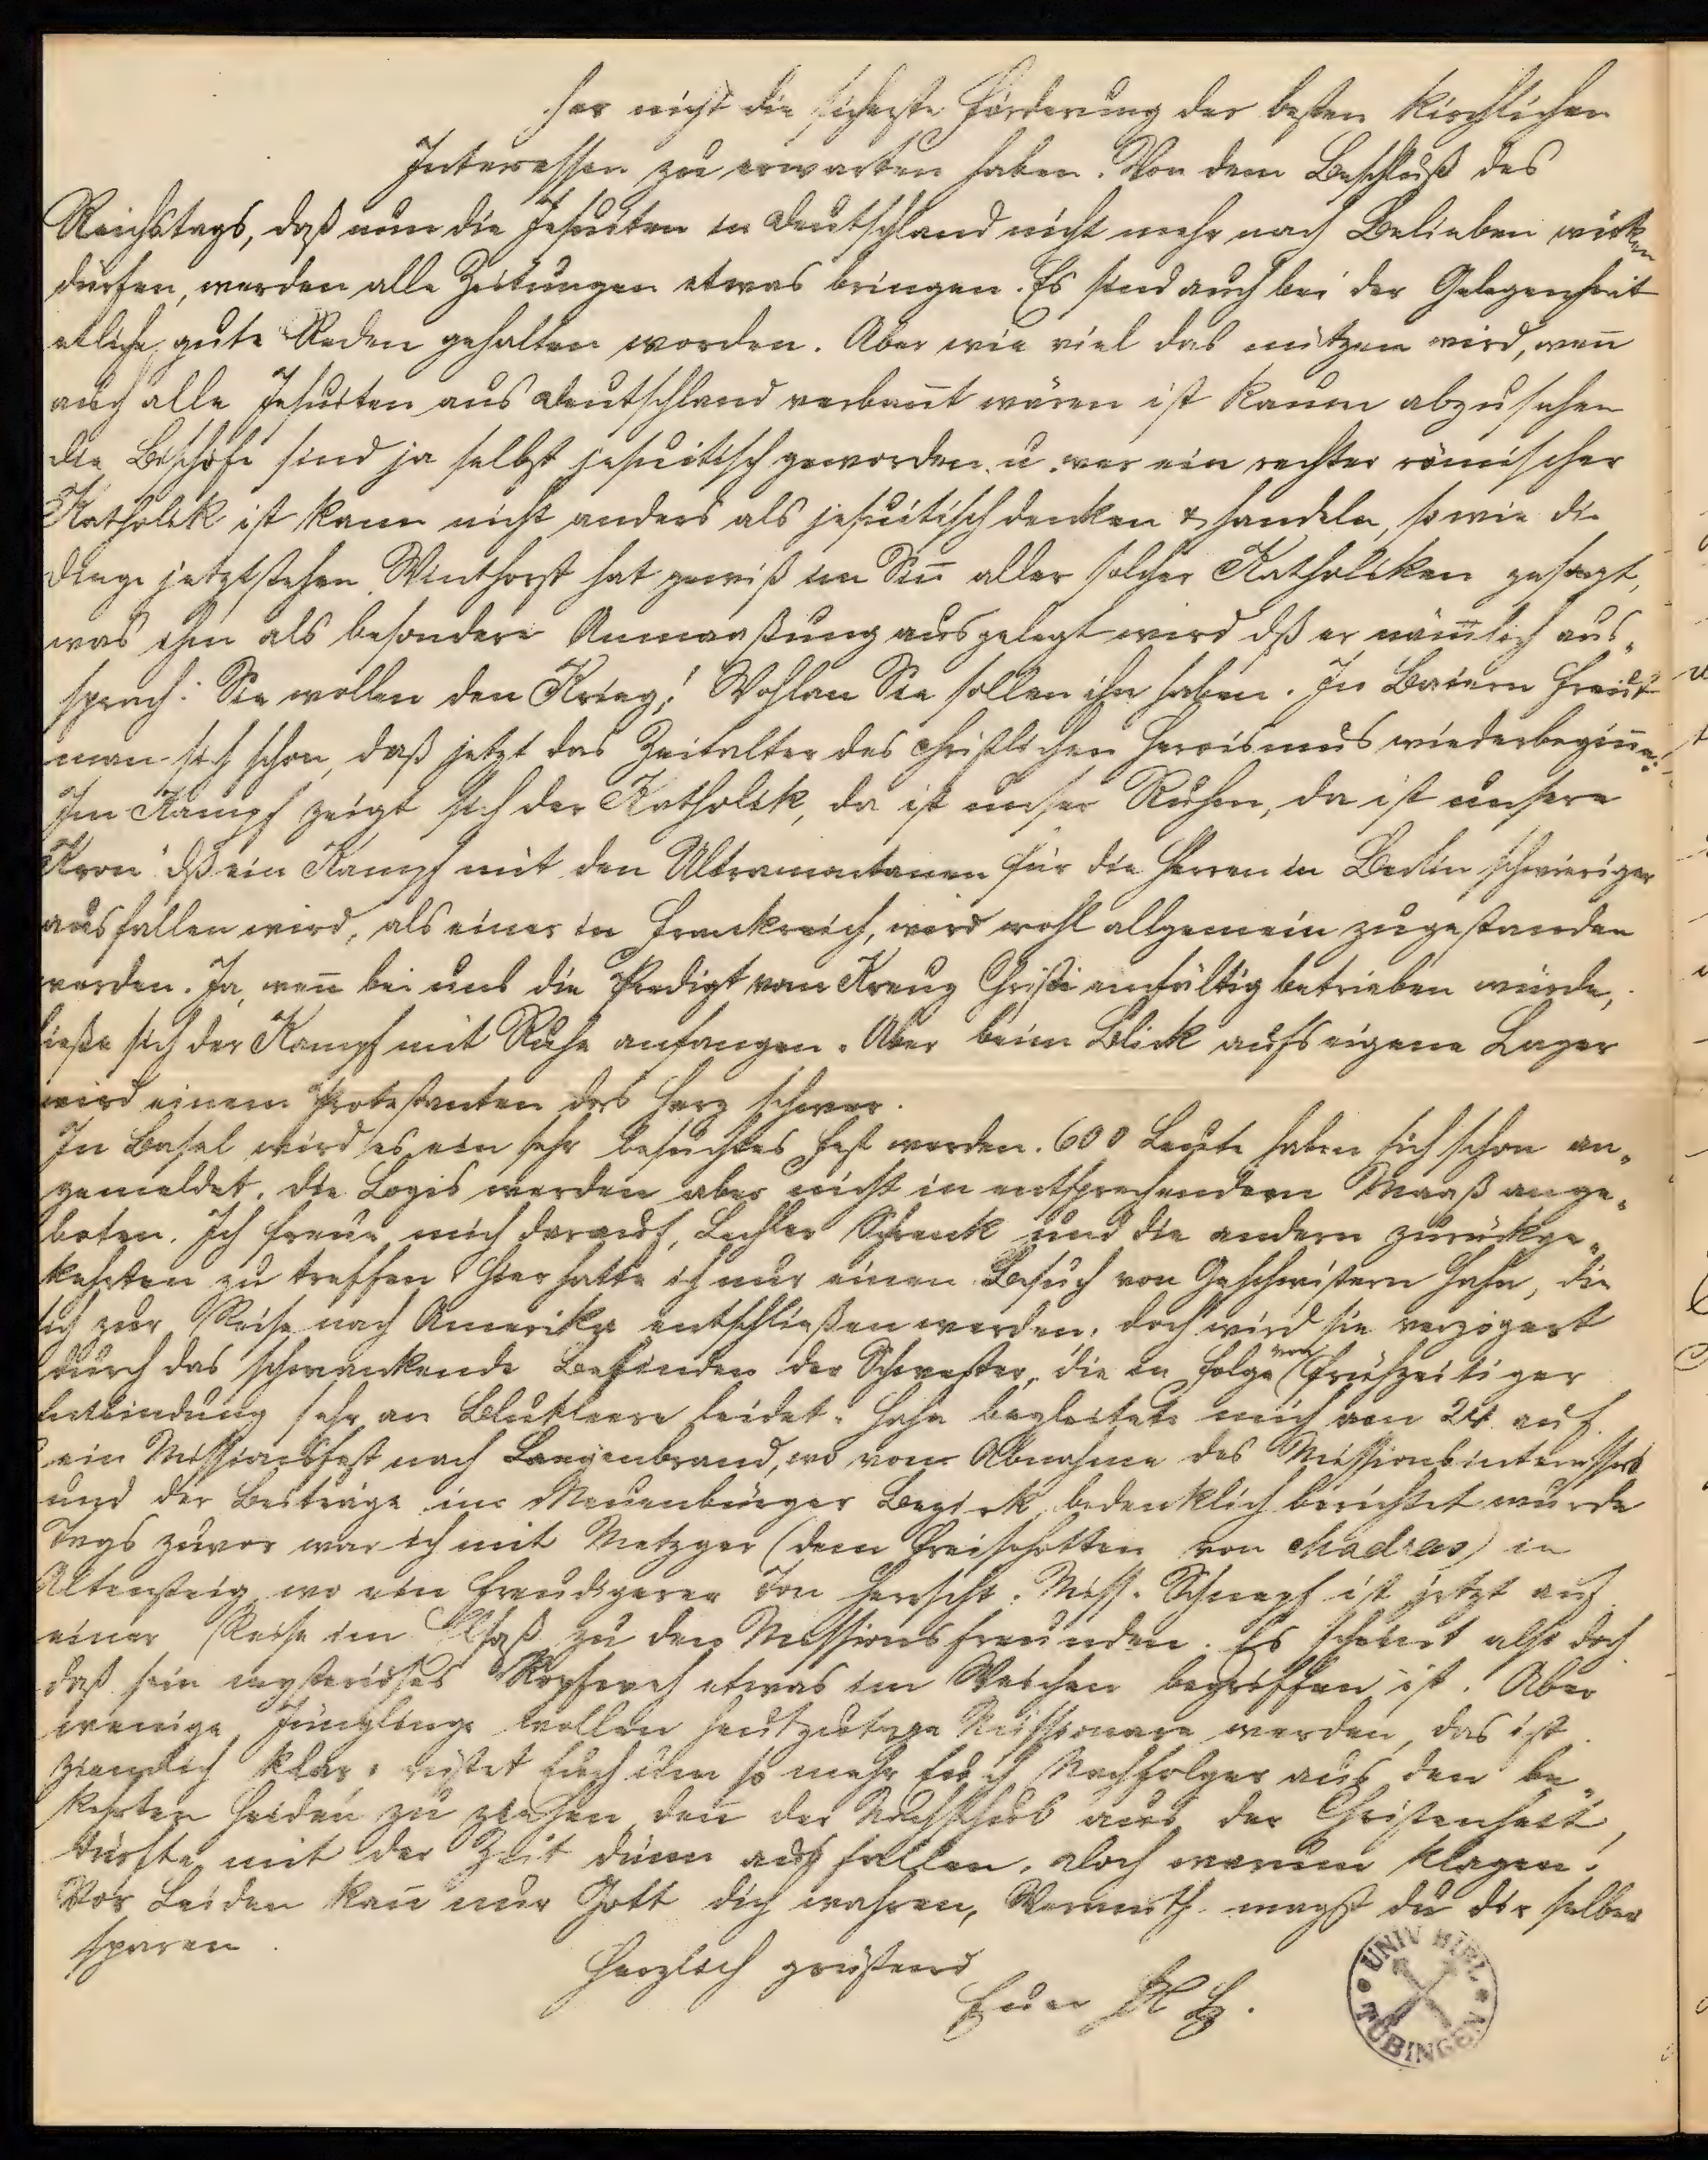 her nicht die sicherste Förderung der besten kirchlichen
Interessen zu erwarten haben. Von dem Beschluß des
Reichstags, daß nun die Jesuiten in Deutschland nicht mehr nach Belieben wirken
dürfen, werden alle Zeitungen etwas bringen. Es sind auch bei der Gelegenheit
etliche gute Reden gehalten worden. Aber wie viel das nützen wird, wen̄
auch alle Jesuiten aus Deutschland verban̄t wären ist kaum abzusehen
die Bischöfe sind ja selbst jesuitisch geworden u. wer ein rechter römischer
Katholik ist kann nicht anders als jesuitisch denken & handeln, so wie die
Dinge jetzt stehen. Winthorst hat gewiß im Sin̄ aller solcher Katholiken gesagt,
was ihm als besondere Anmaaßung ausgelegt wird dß er näm̄lich aus„
sprach: Sie wollen den Krieg! Wohlan Sie sollen ihn haben. In Baiern freut
man sich schon, daß jetzt das Zeitalter des christlichen Heroismus wiederbegin̄e:
Im Kampf zeigt sich der Katholik, da ist unser Ruhm, da ist unsere
Kron" dß ein Kampf mit den Ultramontanen für die Herren in Berlin schwieriger
ausfallen wird, als einer in Frankreich, wird wohl allgemein zugestanden
werden. Ja, wen̄ bei uns die Predigt vom Kreuz Christi einfältig betrieben würde,
ließe sich der Kampf mit Ruhe anfangen. Aber beim Blick aufs eigene Lager
wird einem Protestanten das Herz schwer.
In Basel wird es ein sehr besuchtes Fest werden. 600 Leute haben sich schon an„
gemeldet. Die Logis werden aber nicht in entsprechendem Maaß ange„
boten. Ich freue mich darauf, Lechler Schrenk und die andern zurückge„
kehrten zu treffen. Hier hatte ich nur einen Besuch von Geschwistern Hahn, die
sich zur Reise nach Amerika entschließen werden, doch wird sie verzögert
durch das schwankende Befinden der Schwester, die in Folge von frühzeitiger
Entbindung sehr an Blutleere leidet. Hahn begleitete mich am 24. auf
ein Missionsfest nach Langenbrand, wo vom Abnahme des Missionsinteresses
und der Beiträge im Neuenbürger Bezirk bedenklich berichtet wurde
Tags zuvor war ich mit Metzger (dem Freischotten von Madras) in
Altensteig wo ein freudigerer Ton herrscht. Miss. Schnepf ist jetzt auf
einer Reise im Elsaß zu den Missionsfreunden. Es scheint also doch
daß sein mysteriöses Kopfweh etwas im Weichen begriffen ist. Aber
wenige Jünglinge wollen heutzutage Missionare werden, das ist
ziemlich klar; rüstet Euch um so mehr Euch Nachfolger aus den be„
kehrten Heiden zu ziehen den̄ der Nachschub aus der Christenheit,
dürfte mit der Zeit dünn ausfallen. Doch warum klagen!
Vor Leiden kan̄ nur Gott dich wahren, Unmuth magst du dir selber
sparen.
Herzlich grüßend
Euer HG.
UNIV. BIBL.
TÜBINGEN